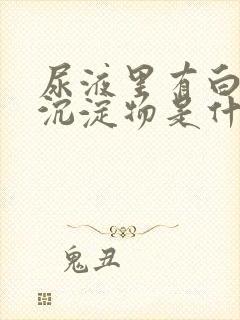 尿液里有白
沉淀物是什
鬼丑